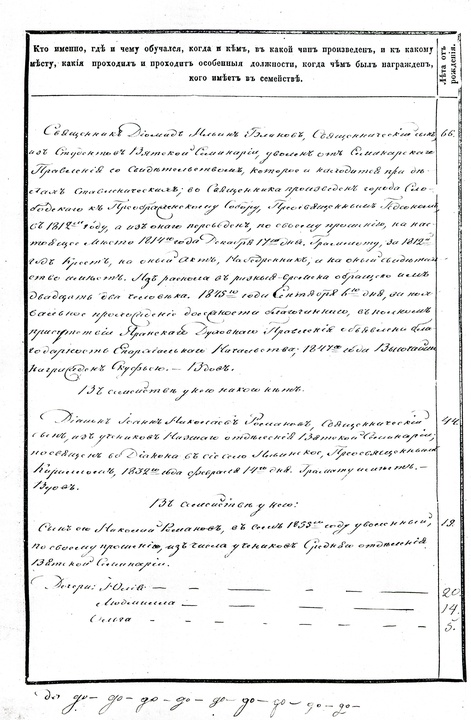 Кто именно, гдѣ и чему обучался, когда и кѣмъ, въ какой чинъ произведенъ, и къ какому
мѣсту, какія проходилъ и проходитъ особенныя должности, когда чѣмъ былъ награжденъ,
кого имѣетъ въ семействѣ.
Лѣта отъ
рожденія.
Священникъ Діомидъ Ильинъ Священническій сынъ, 66.
изъ Студентовъ Вятской Семинаріи, уволенъ отъ Семинарскаго
Правленія со Свидѣтельствомъ, которое и находится при дѣ-
лахъ во Священника произведенъ города Сло-
бодскаго къ Преображенскому Собору, Преосвященнымъ Гедеономъ,
въ 1812мъ году, а изъ онаго переведенъ, по своему прошенію, на нас-
тоящее мѣсто 1814го года Декабря 17го дня. Грамоту, за 1812й
годъ Крестъ, на оный актъ, Набедренникъ, и на оный свидѣтель-
ство имѣетъ. Изъ раскола въ разныя времена обращено имъ
двадцать два человѣка. 1845го года Сентября 6го дня, за пох-
вальное прохожденіе должности благочиннаго, въ полномъ
присутствіи Яранскаго Духовнаго Правленія объявлена бла-
годарность Епархіальнаго Начальства; 1847го года Высочайше
награжденъ Скуфьею. — Вдовъ.
Въ семействѣ у него никого нѣтъ.
Діаконъ Іоаннъ Николаевъ Романовъ, Священническій 44.
сынъ, изъ учениковъ Низшаго отдѣленія Вятской Семинаріи;
посвященъ во Діакона въ село Ильинское, Преосвященнымъ
Кирилломъ, 1832го года февраля 14го дня. Грамату имѣетъ. —
Вдовъ.
Въ семействѣ у него:
Сынъ его Николай Романовъ, въ семъ 1853мъ году уволенный, 19.
по своему прошенію, изъ числа учениковъ Средняго отдѣленія
Вятской Семинаріи.
Дочери: Юлія — — — — — 20.
Людмилла — — — — 14.
Ольга — — — — — 5.
до до — до — до — до — до — до — до — до — до —